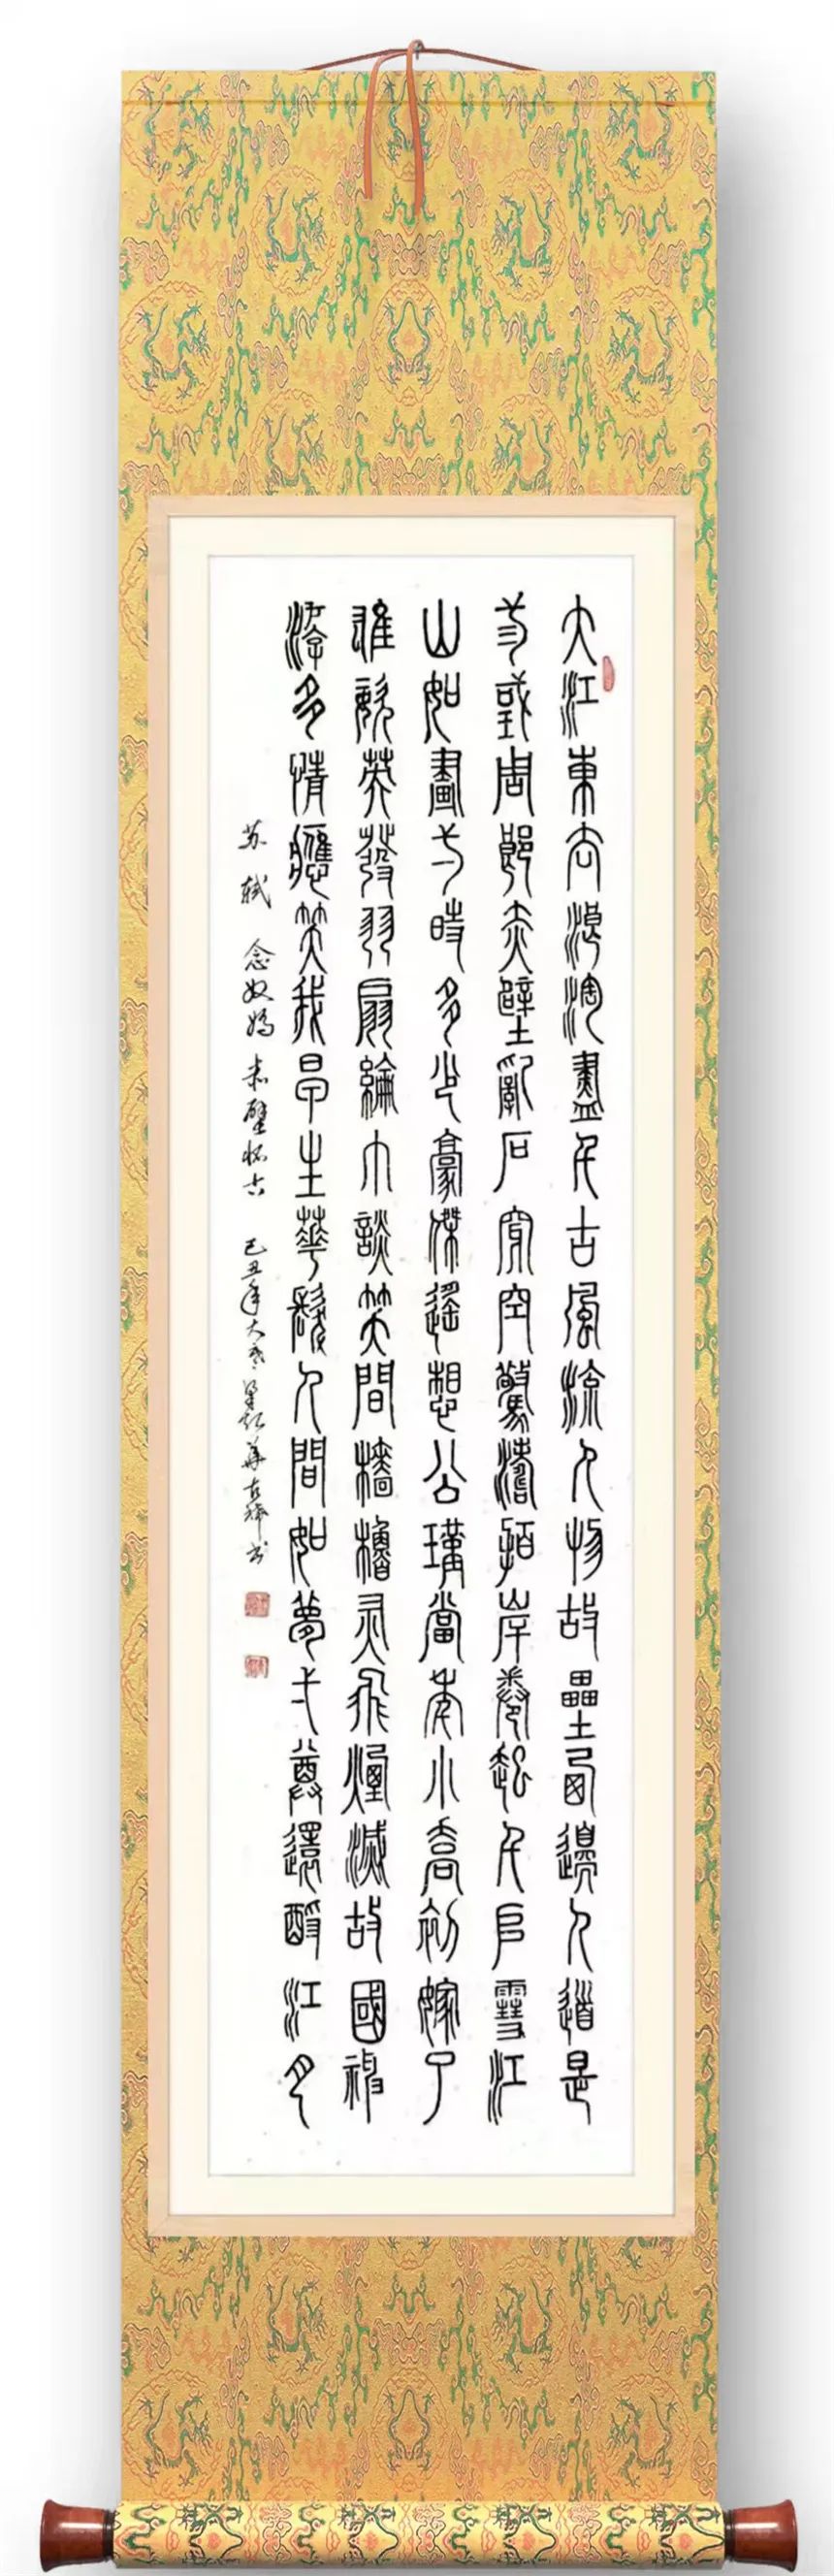 大江東去浪淘盡千古風流人物故壘西邊人道是
三國周郎赤壁亂石穿空驚濤拍岸卷起千堆雪江
山如畫一時多少豪傑遙想公瑾當年小喬初嫁了
雄姿英發羽扇綸巾談笑間檣櫓灰飛煙滅故國神
游多情應笑我早生華髮人間如夢一尊還酹江月
苏轼 念奴娇 赤壁怀古 己丑年大寒 书